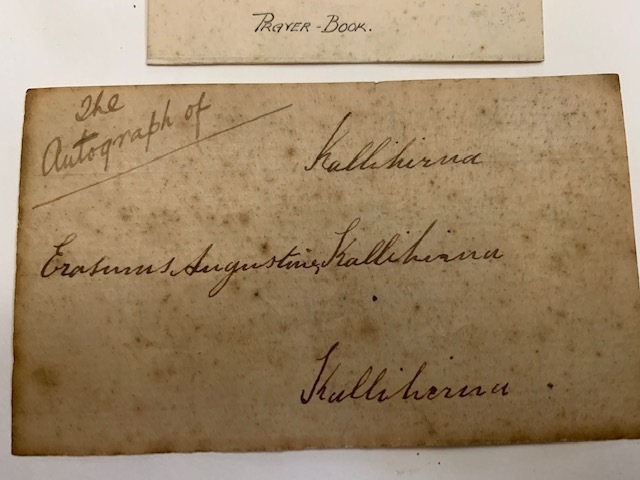 PRAYER-BOOK.
The
Autograph of
Kallihirua
Erasmus Augustine Kallihirua
Kallihirua